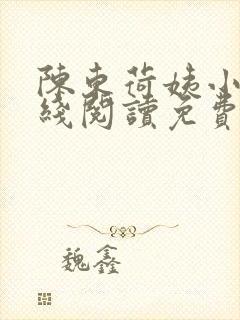 陳東荷姨小
綫閱讀免費
魏鑫